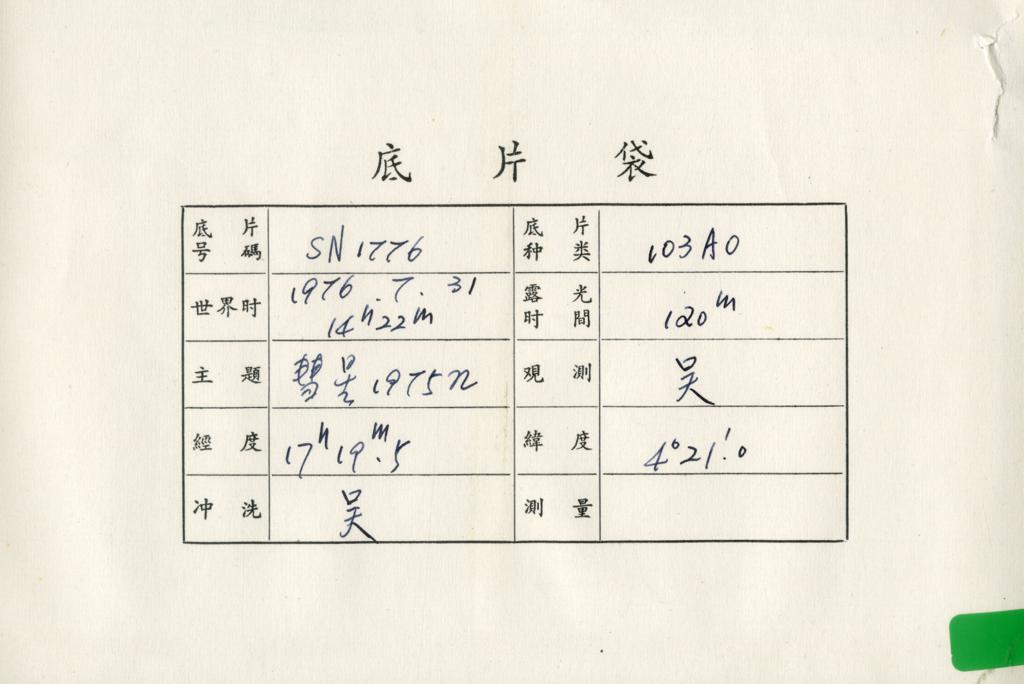 底 片 袋
底 片 号 碼 SN1776 底 片 种 类 103A0
世界时 1976.7.31 14ʰ22ᵐ 露 光 时 間 120ᵐ
主 題 彗星1975n 观 測 吴
經 度 17ʰ19ᵐ.5 緯 度 4°21′.0
冲 洗 吴 測 量